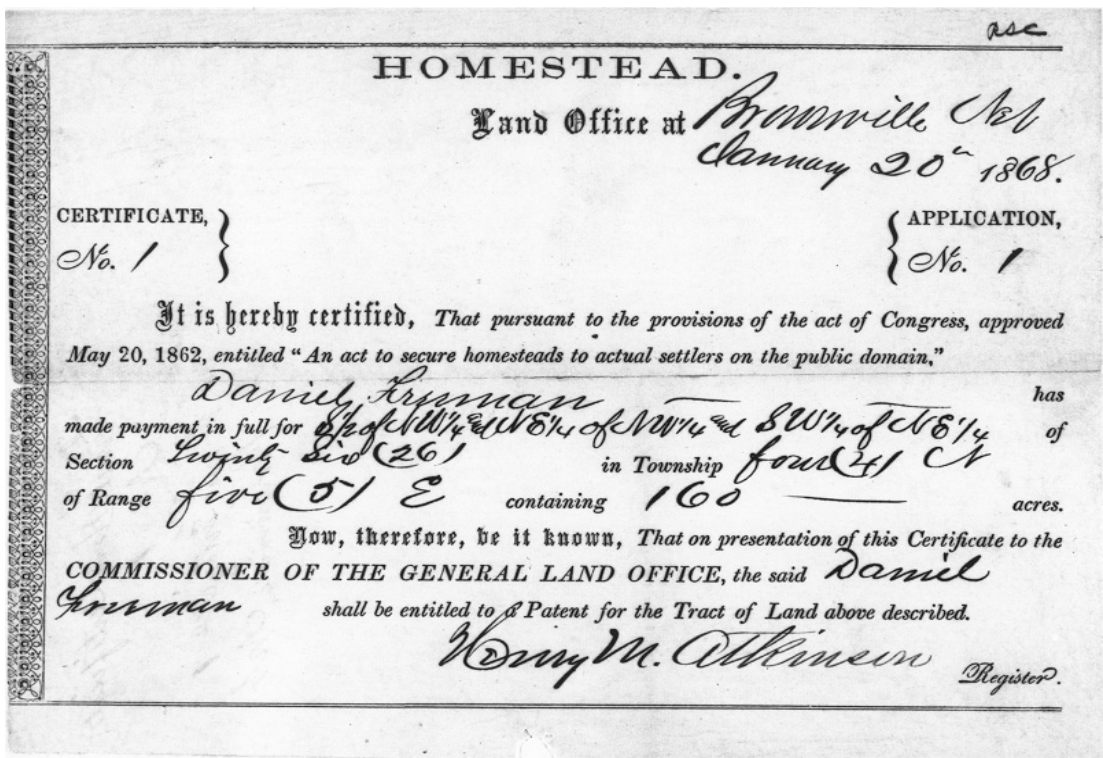 asc
HOMESTEAD.
Land Office at Brownville Neb
January 20th 1868.
CERTIFICATE, } { APPLICATION,
No. 1 No. 1
It is hereby certified, That pursuant to the provisions of the act of Congress, approved
May 20, 1862, entitled “An act to secure homesteads to actual settlers on the public domain,”
Daniel Freeman has
made payment in full for S½ of NW¼ and NE¼ of NW¼ and SW¼ of NE¼ of
Section Twenty Six (26) in Township four (4) N
of Range five (5) E containing 160 acres.
Now, therefore, be it known, That on presentation of this Certificate to the
COMMISSIONER OF THE GENERAL LAND OFFICE, the said Daniel
Freeman shall be entitled to a Patent for the Tract of Land above described.
Henry M. Atkinson
Register.